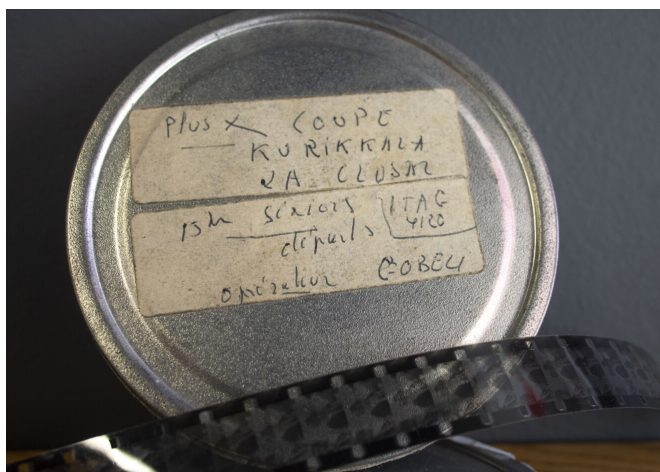 Plus X COUPE
KURIKKALA
LA CLUSAZ
15h séniors ITAG
départs 4120
opérateur GOBELI